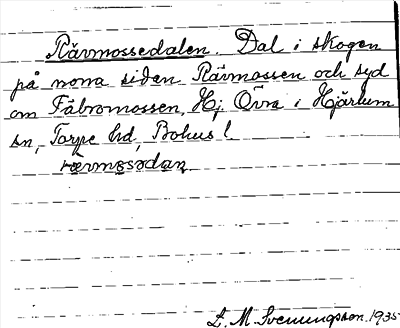 Rävmossedalen. Dal i skogen
på norra sidan Rävmossen och syd
om Fäbromossen, Hj. Övra i Hjärtum
sn, Torpe hd, Bohus l.
rævmosədan
E. M. Svenungsson. 1935